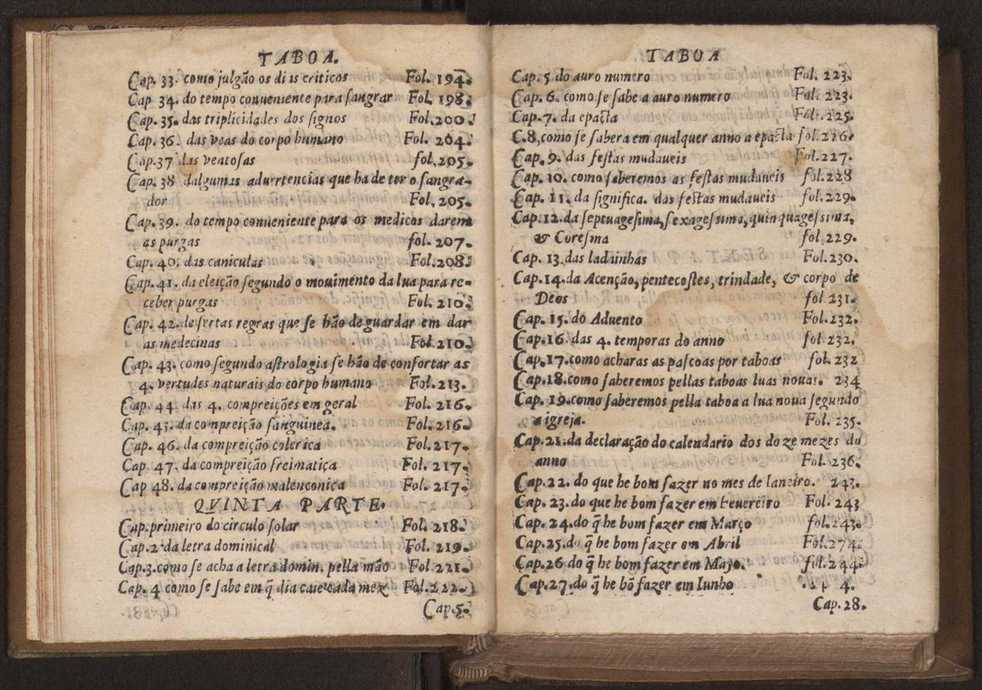 TABOA.
Cap. 33. como julgão os dias criticos Fol. 194.
Cap. 34. do tempo conueniente para sangrar Fol. 198.
Cap. 35. das triplicidades dos signos Fol. 200.
Cap. 36. das veas do corpo humano Fol. 204.
Cap. 37 das ventosas fol. 205.
Cap. 38 dalgumas aduertencias que ha de ter o sangra-
dor Fol. 205.
Cap. 39. do tempo conueniente para os medicos darem
as purgas fol. 207.
Cap. 40. das caniculas Fol. 208.
Cap. 41. da eleição segundo o mouimento da lua para re-
ceber purgas Fol. 210.
Cap. 42. de sertas regras que se hão de guardar em dar
as medecinas Fol. 210.
Cap. 43. como segundo astrologia se hão de confortar as
4. vertudes naturais do corpo humano Fol. 213.
Cap. 44. das 4. compreições em geral Fol. 216.
Cap. 45. da compreição sanguinea. Fol. 216.
Cap. 46. da compreição colerica Fol. 217.
Cap. 47. da compreição freimatica Fol. 217.
Cap 48. da compreição malenconica Fol. 217.
QVINTA PARTE.
Cap. primeiro do circulo solar Fol. 218.
Cap. 2. da letra dominical Fol. 219.
Cap. 3. como se acha a letra domin. pella mão Fol. 221.
Cap. 4 como se sabe em q̃ dia cae cada mez Fol. 222.
Cap. 5.
TABOA
Cap. 5. do auro numero Fol. 223.
Cap. 6. como se sabe a auro numero Fol. 223.
Cap. 7. da epacta Fol. 225.
C. 8, como se sabera em qualquer anno a epacta fol. 226.
Cap. 9. das festas mudaueis Fol. 227.
Cap. 10. como saberemos as festas mudaueis fol. 228
Cap. 11. da significa. das festas mudaueis fol. 229.
Cap. 12. da septuagesima, sexagessima, quinquagessima,
& Coresma fol. 229.
Cap. 13. das ladainhas Fol. 230.
Cap. 14. da Acenção, pentecostes, trindade, & corpo de
Deos fol 231.
Cap. 15. do Aduento Fol. 232.
Cap. 16. das 4. temporas do anno fol. 232.
Cap. 17. como acharas as pascoas por taboas fol. 232
Cap. 18. como saberemos pellas taboas luas nouas. 234
Cap. 19. como saberemos pella taboa a lua noua segundo
a igreja. Fol. 235.
Cap. 21. da declaração do calendario dos doze mezes do
anno Fol. 236.
Cap. 22. do que he bom fazer no mes de Ianeiro. 243.
Cap. 23. do que he bom fazer em Feuereiro Fol. 243
Cap. 24. do q̃ he bom fazer em Março fol. 243.
Cap. 25. do q̃ he bom fazer em Abril Fol. 274.
Cap. 26. do q̃ he bom fazer em Mayo. fol. 244.
Cap. 27. do q̃ he bõ fazer em Iunho 4.
Cap. 28.